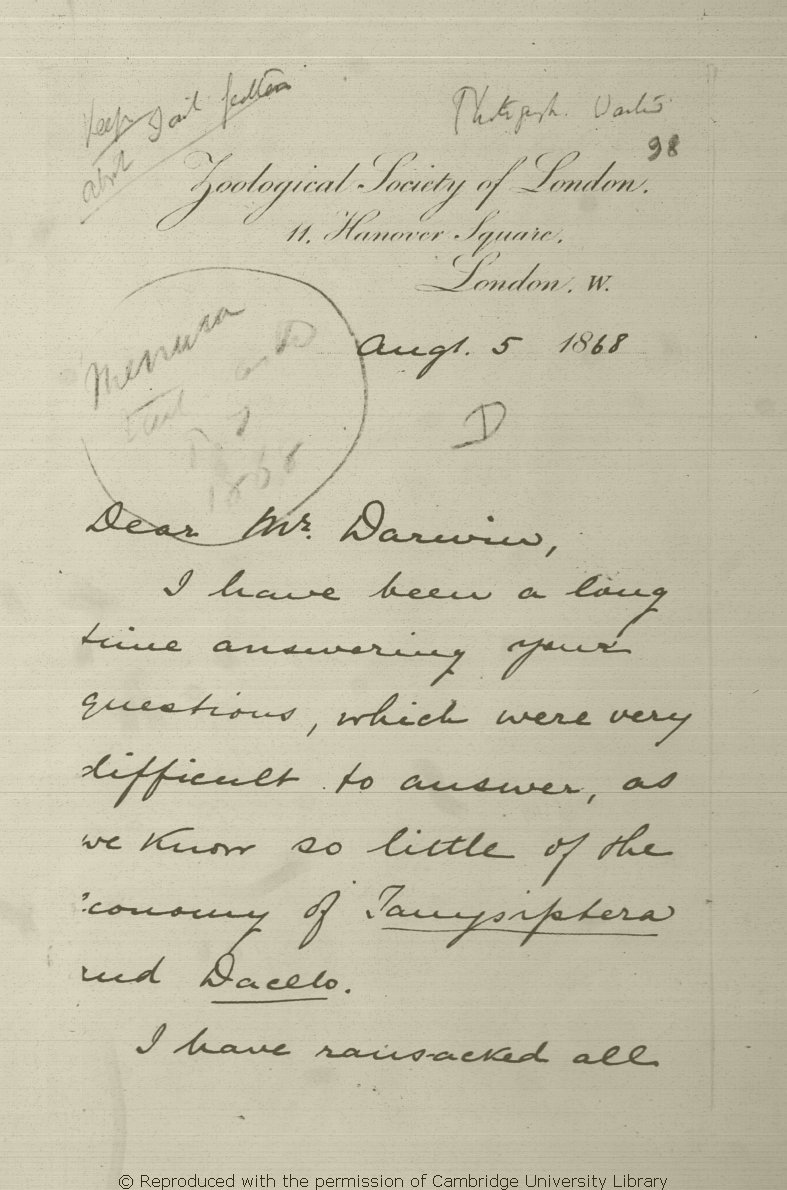 Keep
about Tail feathers
Photograph.
98
Zoological Society of London.
11, Hanover Square,
London, W.
Augt. 5 1868
Menura
Tail
1868
D
Dear Mr. Darwin,
I have been a long
time answering your
questions, which were very
difficult to answer, as
we know so little of the
economy of Tanysiptera
and Dacelo.
I have ransacked all
© Reproduced with the permission of Cambridge University Library